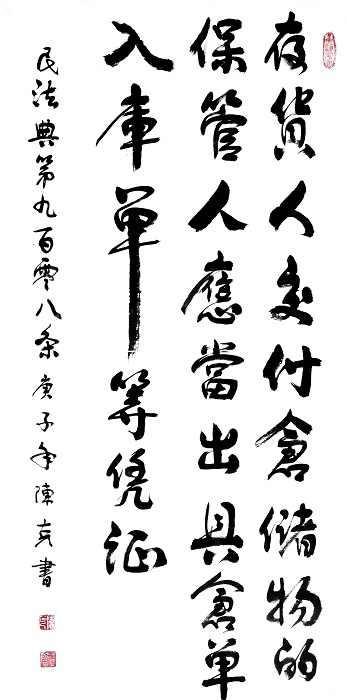 存货人交付倉儲物的
保管人應當出具倉单
入庫单等凭证
民法典第九百零八条 庚子年 陳克書